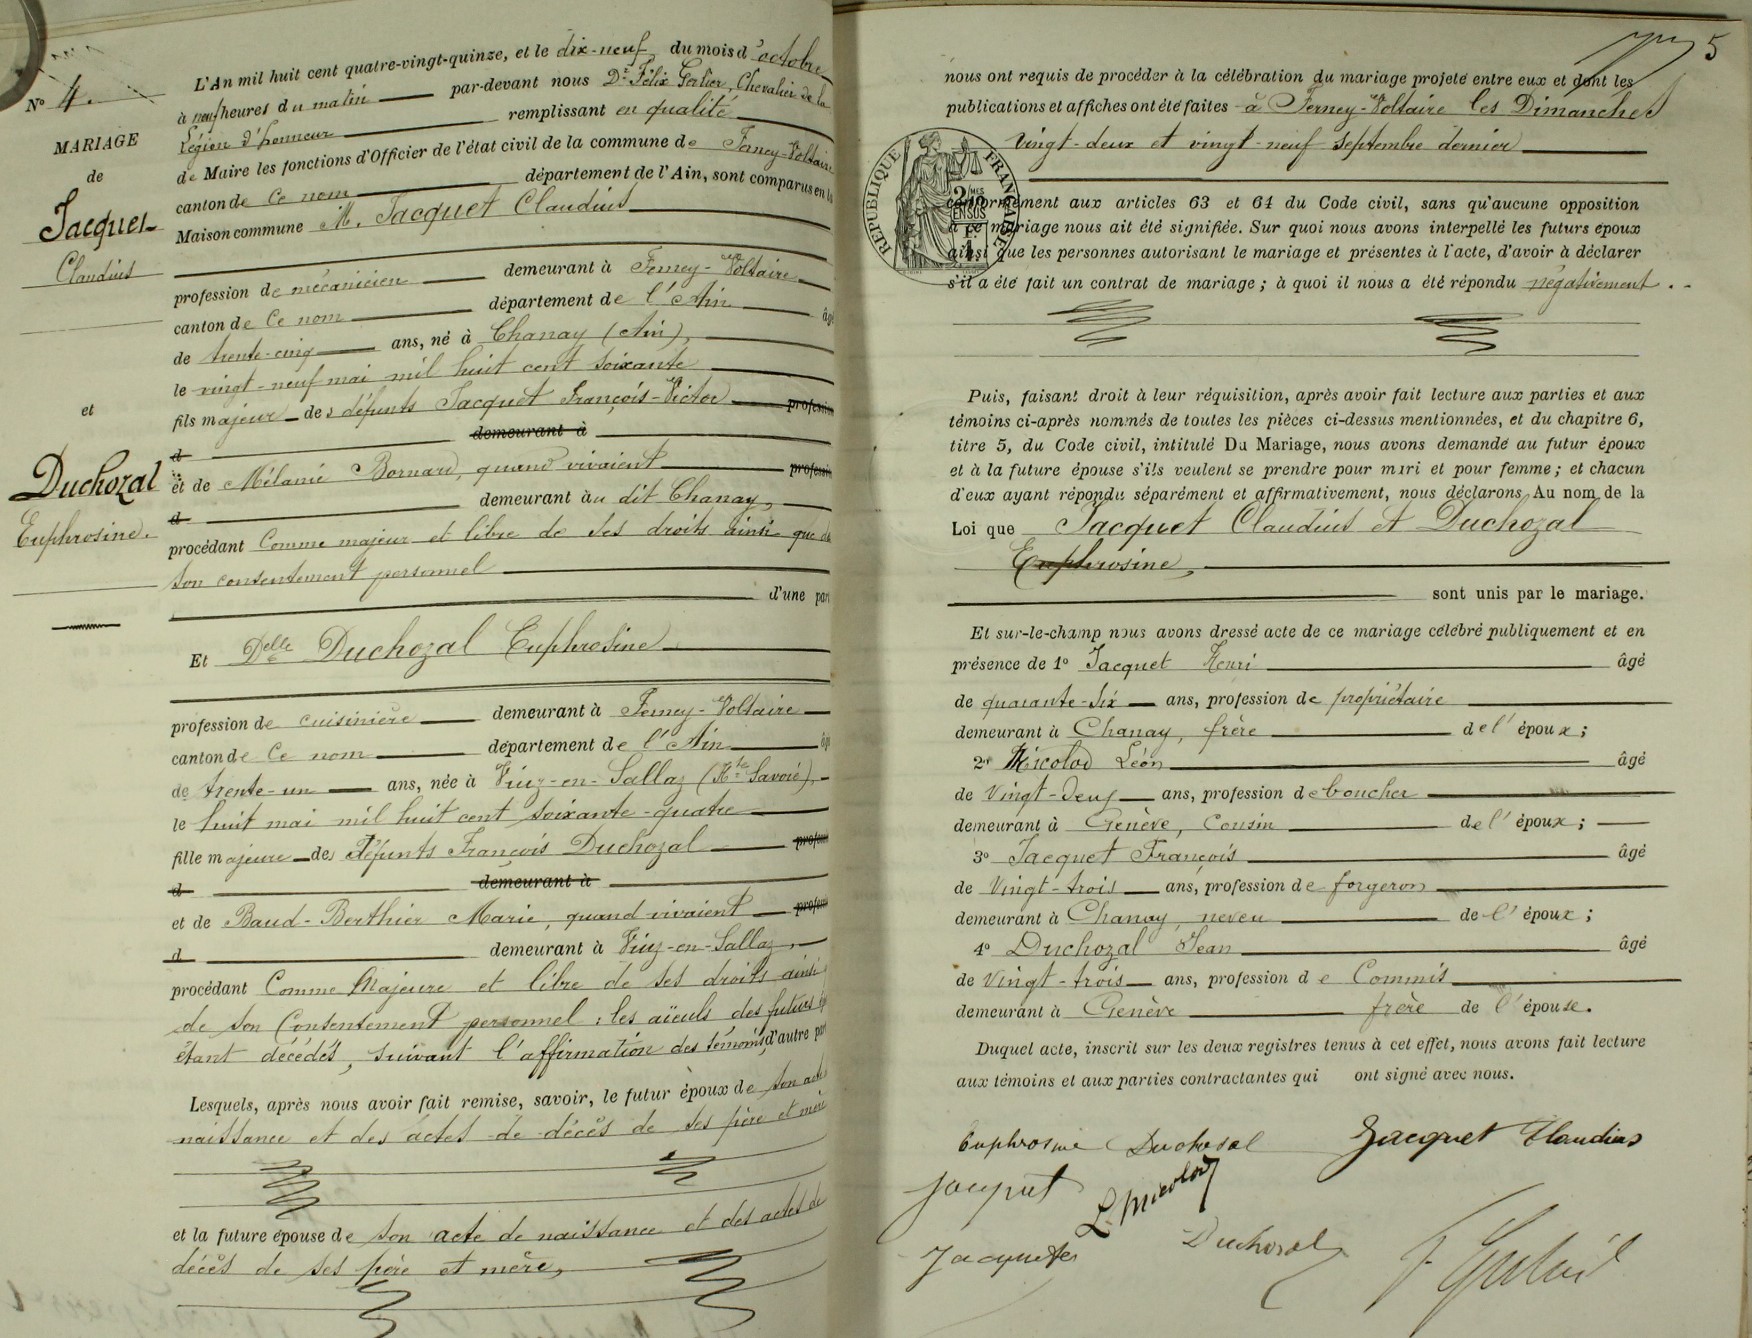 L'An mil huit cent quatre-vingt-quinze, et le dix-neuf du mois d'octobre
à neuf heures du matin par-devant nous Dr Félix Gerlier, Chevalier de la
Légion d'honneur remplissant en qualité
de Maire les fonctions d'Officier de l'état civil de la commune de Ferney-Voltaire
canton de Ce nom département de l'Ain, sont comparus en la
Maison commune M. Jacquet Claudius
profession de mécanicien demeurant à Ferney-Voltaire
canton de Ce nom département de l'Ain âgé
de trente-cinq ans, né à Chanay (Ain),
le vingt-neuf mai mil huit cent soixante
fils majeur des défunts Jacquet François-Victor profession
d demeurant à
et de Mélanie Bornard, quand vivaient profession
d demeurant au dit Chanay,
procédant Comme majeur et libre de ses droits ainsi que de
son consentement personnel
d'une part
Et Delle Duchozal Euphrosine
profession de cuisinière demeurant à Ferney-Voltaire
canton de Ce nom département de l'Ain
de trente-un ans, née à Viuz-en-Sallaz (Hte Savoie),
le huit mai mil huit cent soixante-quatre
fille majeure des Défunts François Duchozal
d demeurant à
et de Baud-Berthier Marie, quand vivaient
d demeurant à Viuz-en-Sallaz,
procédant Comme Majeure et libre de ses droits ainsi
de son Consentement personnel; les aïeuls des futurs
étant décédés, suivant l'affirmation des témoins, d'autre part
Lesquels, après nous avoir fait remise, savoir, le futur époux de son acte
naissance et des actes de décès de ses père et mère
et la future épouse de son acte de naissance et des actes de
décès de ses père et mère,
No 4.
MARIAGE
de
Jacquet
Claudius
et
Duchozal
Euphrosine.
5
nous ont requis de procéder à la célébration du mariage projeté entre eux et dont les
publications et affiches ont été faites à Ferney-Voltaire les Dimanches
vingt-deux et vingt-neuf septembre dernier
RÉPUBLIQUE FRANÇAISE
conformément aux articles 63 et 64 du Code civil, sans qu'aucune opposition
à ce mariage nous ait été signifiée. Sur quoi nous avons interpellé les futurs époux
ainsi que les personnes autorisant le mariage et présentes à l'acte, d'avoir à déclarer
s'il a été fait un contrat de mariage; à quoi il nous a été répondu négativement.
Puis, faisant droit à leur réquisition, après avoir fait lecture aux parties et aux
témoins ci-après nommés de toutes les pièces ci-dessus mentionnées, et du chapitre 6,
titre 5, du Code civil, intitulé Du Mariage, nous avons demandé au futur époux
et à la future épouse s'ils veulent se prendre pour mari et pour femme; et chacun
d'eux ayant répondu séparément et affirmativement, nous déclarons Au nom de la
Loi que Jacquet Claudius et Duchozal
Euphrosine,
sont unis par le mariage.
Et sur-le-champ nous avons dressé acte de ce mariage célébré publiquement et en
présence de 1º Jacquet Henri âgé
de quarante-six ans, profession de propriétaire
demeurant à Chanay, frère de l'époux;
2º Nicolod Léon âgé
de Vingt-deux ans, profession de boucher
demeurant à Genève, Cousin de l'époux;
3º Jacquet François âgé
de Vingt-trois ans, profession de forgeron
demeurant à Chanay, neveu de l'époux;
4º Duchozal Jean âgé
de Vingt-trois ans, profession de Commis
demeurant à Genève frère de l'épouse.
Duquel acte, inscrit sur les deux registres tenus à cet effet, nous avons fait lecture
aux témoins et aux parties contractantes qui ont signé avec nous.
Euphrosine Duchosal Jacquet Claudius
Jacquet L. Nicolod
Jacquet Duchosal